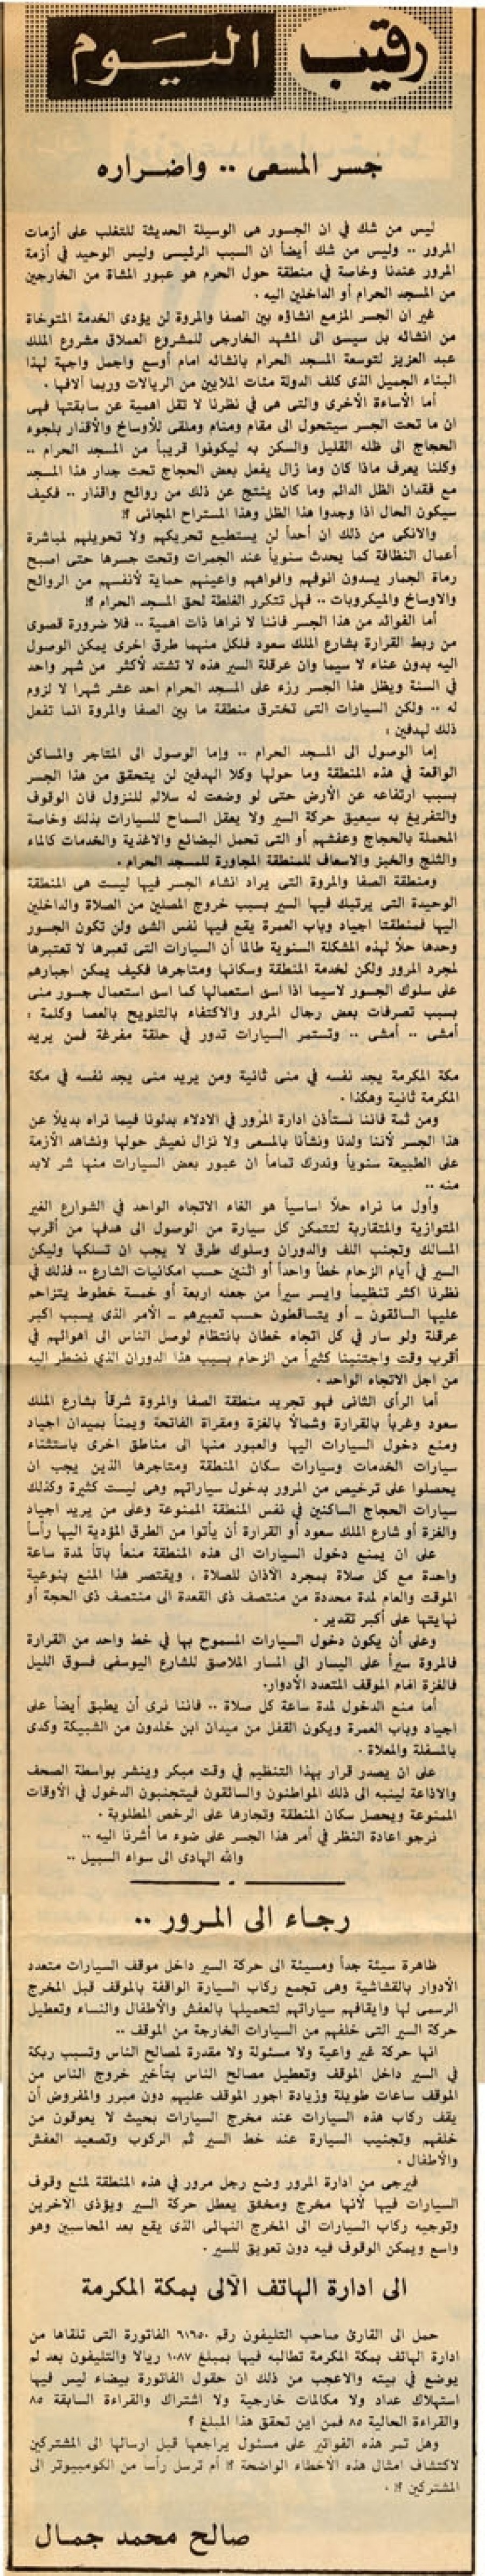 رقيب اليوم
جسر المسعى .. واضراره
ليس من شك في ان الجسور هى الوسيلة الحديثة للتغلب على أزمات
المرور .. وليس من شك أيضاً ان السبب الرئيسى وليس الوحيد في أزمة
المرور عندنا وخاصة في منطقة حول الحرم هو عبور المشاة من الخارجين
من المسجد الحرام أو الداخلين اليه .
غير ان الجسر المزمع انشاؤه بين الصفا والمروة لن يؤدى الخدمة المتوخاة
من انشائه بل سيسىء الى المشهد الخارجى للمشروع العملاق مشروع الملك
عبد العزيز لتوسعة المسجد الحرام بانشائه امام أوسع واجمل واجهة لهذا
البناء الجميل الذى كلف الدولة مئات الملايين من الريالات وربما آلافها .
أما الأساءة الأخرى والتى هى في نظرنا لا تقل اهمية عن سابقتها فهى
ان ما تحت الجسر سيتحول الى مقام ومنام وملقى للأوساخ والأقذار بلجوء
الحجاج الى ظله القليل والسكن به ليكونوا قريباً من المسجد الحرام ..
وكلنا يعرف ماذا كان وما زال يفعل بعض الحجاج تحت جدار هذا المسجد
مع فقدان الظل الدائم وما كان ينتج عن ذلك من روائح واقذار .. فكيف
سيكون الحال اذا وجدوا هذا الظل وهذا المستراح المجانى ؟!
والانكى من ذلك ان أحداً لن يستطيع تحريكهم ولا تحويلهم لمباشرة
أعمال النظافة كما يحدث سنوياً عند الجمرات وتحت جسرها حتى اصبح
رماة الجمار يسدون انوفهم وافواههم واعينهم حماية لأنفسهم من الروائح
والاوساخ والميكروبات .. فهل تتكرر الغلطة لحق المسجد الحرام ؟!
أما الفوائد من هذا الجسر فاننا لا نراها ذات اهمية .. فلا ضرورة قصوى
من ربط القرارة بشارع الملك سعود فلكل منهما طرق اخرى يمكن الوصول
اليه بدون عناء لا سيما وان عرقلة السير هذه لا تشتد لأكثر من شهر واحد
في السنة ويظل هذا الجسر رزء على المسجد الحرام احد عشر شهرا لا لزوم
له .. ولكن السيارات التى تخترق منطقة ما بين الصفا والمروة انما تفعل
ذلك لهدفين :
إما الوصول الى المسجد الحرام .. وإما الوصول الى المتاجر والمساكن
الواقعة في هذه المنطقة وما حولها وكلا الهدفين لن يتحقق من هذا الجسر
بسبب ارتفاعه عن الأرض حتى لو وضعت له سلالم للنزول فان الوقوف
والتفريغ به سيعيق حركة السير ولا يعقل السماح للسيارات بذلك وخاصة
المحملة بالحجاج وعفشهم أو التى تحمل البضائع والاغذية والخدمات كالماء
والثلج والخبز والاسعاف للمنطقة المجاورة للمسجد الحرام .
ومنطقة الصفا والمروة التى يراد انشاء الجسر فيها ليست هى المنطقة
الوحيدة التى يرتبك فيها السير بسبب خروج المصلين من الصلاة والداخلين
اليها فمنطقتا اجياد وباب العمرة يقع فيها نفس الشىء ولن تكون الجسور
وحدها حلاً لهذه المشكلة السنوية طالما أن السيارات التى تعبرها لا تعتبرها
لمجرد المرور ولكن لخدمة المنطقة وسكانها ومتاجرها فكيف يمكن اجبارهم
على سلوك الجسور لاسيما اذا اسىء استعمالها كما اسىء استعمال جسور منى
بسبب تصرفات بعض رجال المرور والاكتفاء بالتلويح بالعصا وكلمة :
أمشى .. أمشى .. وتستمر السيارات تدور في حلقة مفرغة فمن يريد
مكة المكرمة يجد نفسه في منى ثانية ومن يريد منى يجد نفسه في مكة
المكرمة ثانية وهكذا .
ومن ثمة فاننا نستأذن ادارة المرور في الادلاء بدلونا فيما نراه بديلاً عن
هذا الجسر لأننا ولدنا ونشأنا بالمسعى ولا نزال نعيش حولها ونشاهد الأزمة
على الطبيعة سنوياً وندرك تماماً ان عبور بعض السيارات منها شر لابد
منه ..
وأول ما نراه حلاً اساسياً هو الغاء الاتجاه الواحد في الشوارع الغير
المتوازية والمتقاربة لتتمكن كل سيارة من الوصول الى هدفها من أقرب
المسالك وتجنب اللف والدوران وسلوك طرق لا يجب ان تسلكها وليكن
السير في أيام الزحام خطاً واحداً أو اثنين حسب امكانيات الشارع .. فذلك في
نظرنا اكثر تنظيماً وايسر سيراً من جعله اربعة أو خمسة خطوط يتزاحم
عليها السائقون ــ أو يتساقطون حسب تعبيرهم ــ الأمر الذى يسبب اكبر
عرقلة ولو سار في كل اتجاه خطان بانتظام لوصل الناس الى اهوائهم في
أقرب وقت واجتنبنا كثيراً من الزحام بسبب هذا الدوران الذي نضطر اليه
من اجل الاتجاه الواحد .
أما الرأى الثانى فهو تجريد منطقة الصفا والمروة شرقاً بشارع الملك
سعود وغرباً بالقرارة وشمالاً بالغزة ومقرأة الفاتحة ويمناً بميدان اجياد
ومنع دخول السيارات اليها والعبور منها الى مناطق اخرى باستثناء
سيارات الخدمات وسيارات سكان المنطقة ومتاجرها الذين يجب ان
يحصلوا على ترخيص من المرور بدخول سياراتهم وهى ليست كثيرة وكذلك
سيارات الحجاج الساكنين في نفس المنطقة الممنوعة وعلى من يريد اجياد
والغزة أو شارع الملك سعود أو القرارة أن يأتوا من الطرق المؤدية اليها رأساً
على ان يمنع دخول السيارات الى هذه المنطقة منعاً باتاً لمدة ساعة
واحدة مع كل صلاة بمجرد الآذان للصلاة ، ويقتصر هذا المنع بنوعية
الموقت والعام لمدة محددة من منتصف ذى القعدة الى منتصف ذى الحجة أو
نهايتها على أكبر تقدير .
وعلى أن يكون دخول السيارات المسموح بها في خط واحد من القرارة
فالمروة سيراً على اليسار الى المسار الملاصق للشارع اليوسفى فسوق الليل
فالغزة امام الموقف المتعدد الأدوار.
أما منع الدخول لمدة ساعة كل صلاة .. فاننا نرى أن يطبق أيضاً على
اجياد وباب العمرة ويكون القفل من ميدان ابن خلدون من الشبيكة وكدى
بالمسفلة والمعلاة .
على ان يصدر قرار بهذا التنظيم في وقت مبكر وينشر بواسطة الصحف
والاذاعة لينبه الى ذلك المواطنون والسائقون فيتجنبون الدخول في الأوقات
الممنوعة ويحصل سكان المنطقة وتجارها على الرخص المطلوبة .
نرجو اعادة النظر في أمر هذا الجسر على ضوء ما أشرنا اليه ..
والله الهادى الى سواء السبيل ..
رجاء الى المرور ..
ظاهرة سيئة جداً ومسيئة الى حركة السير داخل موقف السيارات متعدد
الأدوار بالقشاشية وهى تجمع ركاب السيارة الواقفة بالموقف قبل المخرج
الرسمى لها وايقافهم سياراتهم لتحميلها بالعفش والأطفال والنساء وتعطيل
حركة السير التى خلفهم من السيارات الخارجة من الموقف ..
انها حركة غير واعية ولا مسئولة ولا مقدرة لمصالح الناس وتسبب ربكة
في السير داخل الموقف وتعطيل مصالح الناس بتأخير خروج الناس من
الموقف ساعات طويلة وزيادة اجور الموقف عليهم دون مبرر والمفروض أن
يقف ركاب هذه السيارات عند مخرج السيارات بحيث لا يعوقون من
خلفهم وتجنيب السيارة عند خط السير ثم الركوب وتصعيد العفش
والأطفال .
فيرجى من ادارة المرور وضع رجل مرور في هذه المنطقة لمنع وقوف
السيارات فيها لأنها مخرج ومخنق يعطل حركة السير ويؤذى الآخرين
وتوجيه ركاب السيارات الى المخرج النهائى الذى يقع بعد المحاسبين وهو
واسع ويمكن الوقوف فيه دون تعويق للسير .
الى ادارة الهاتف الآلى بمكة المكرمة
حمل الى القارئ صاحب التليفون رقم ٦١٦٥٠ الفاتورة التى تلقاها من
ادارة الهاتف بمكة المكرمة تطالبه فيها بمبلغ ١٠٨٧ ريالا والتليفون بعد لم
يوضع في بيته والاعجب من ذلك ان حقول الفاتورة بيضاء ليس فيها
استهلاك عداد ولا مكالمات خارجية ولا اشتراك والقراءة السابقة ٨٥
والقراءة الحالية ٨٥ فمن اين تحقق هذا المبلغ ؟
وهل تمر هذه الفواتير على مسئول يراجعها قبل ارسالها الى المشتركين
لاكتشاف امثال هذه الأخطاء الواضحة ؟! أم ترسل رأساً من الكومبيوتر الى
المشتركين ؟! .
صالح محمد جمال